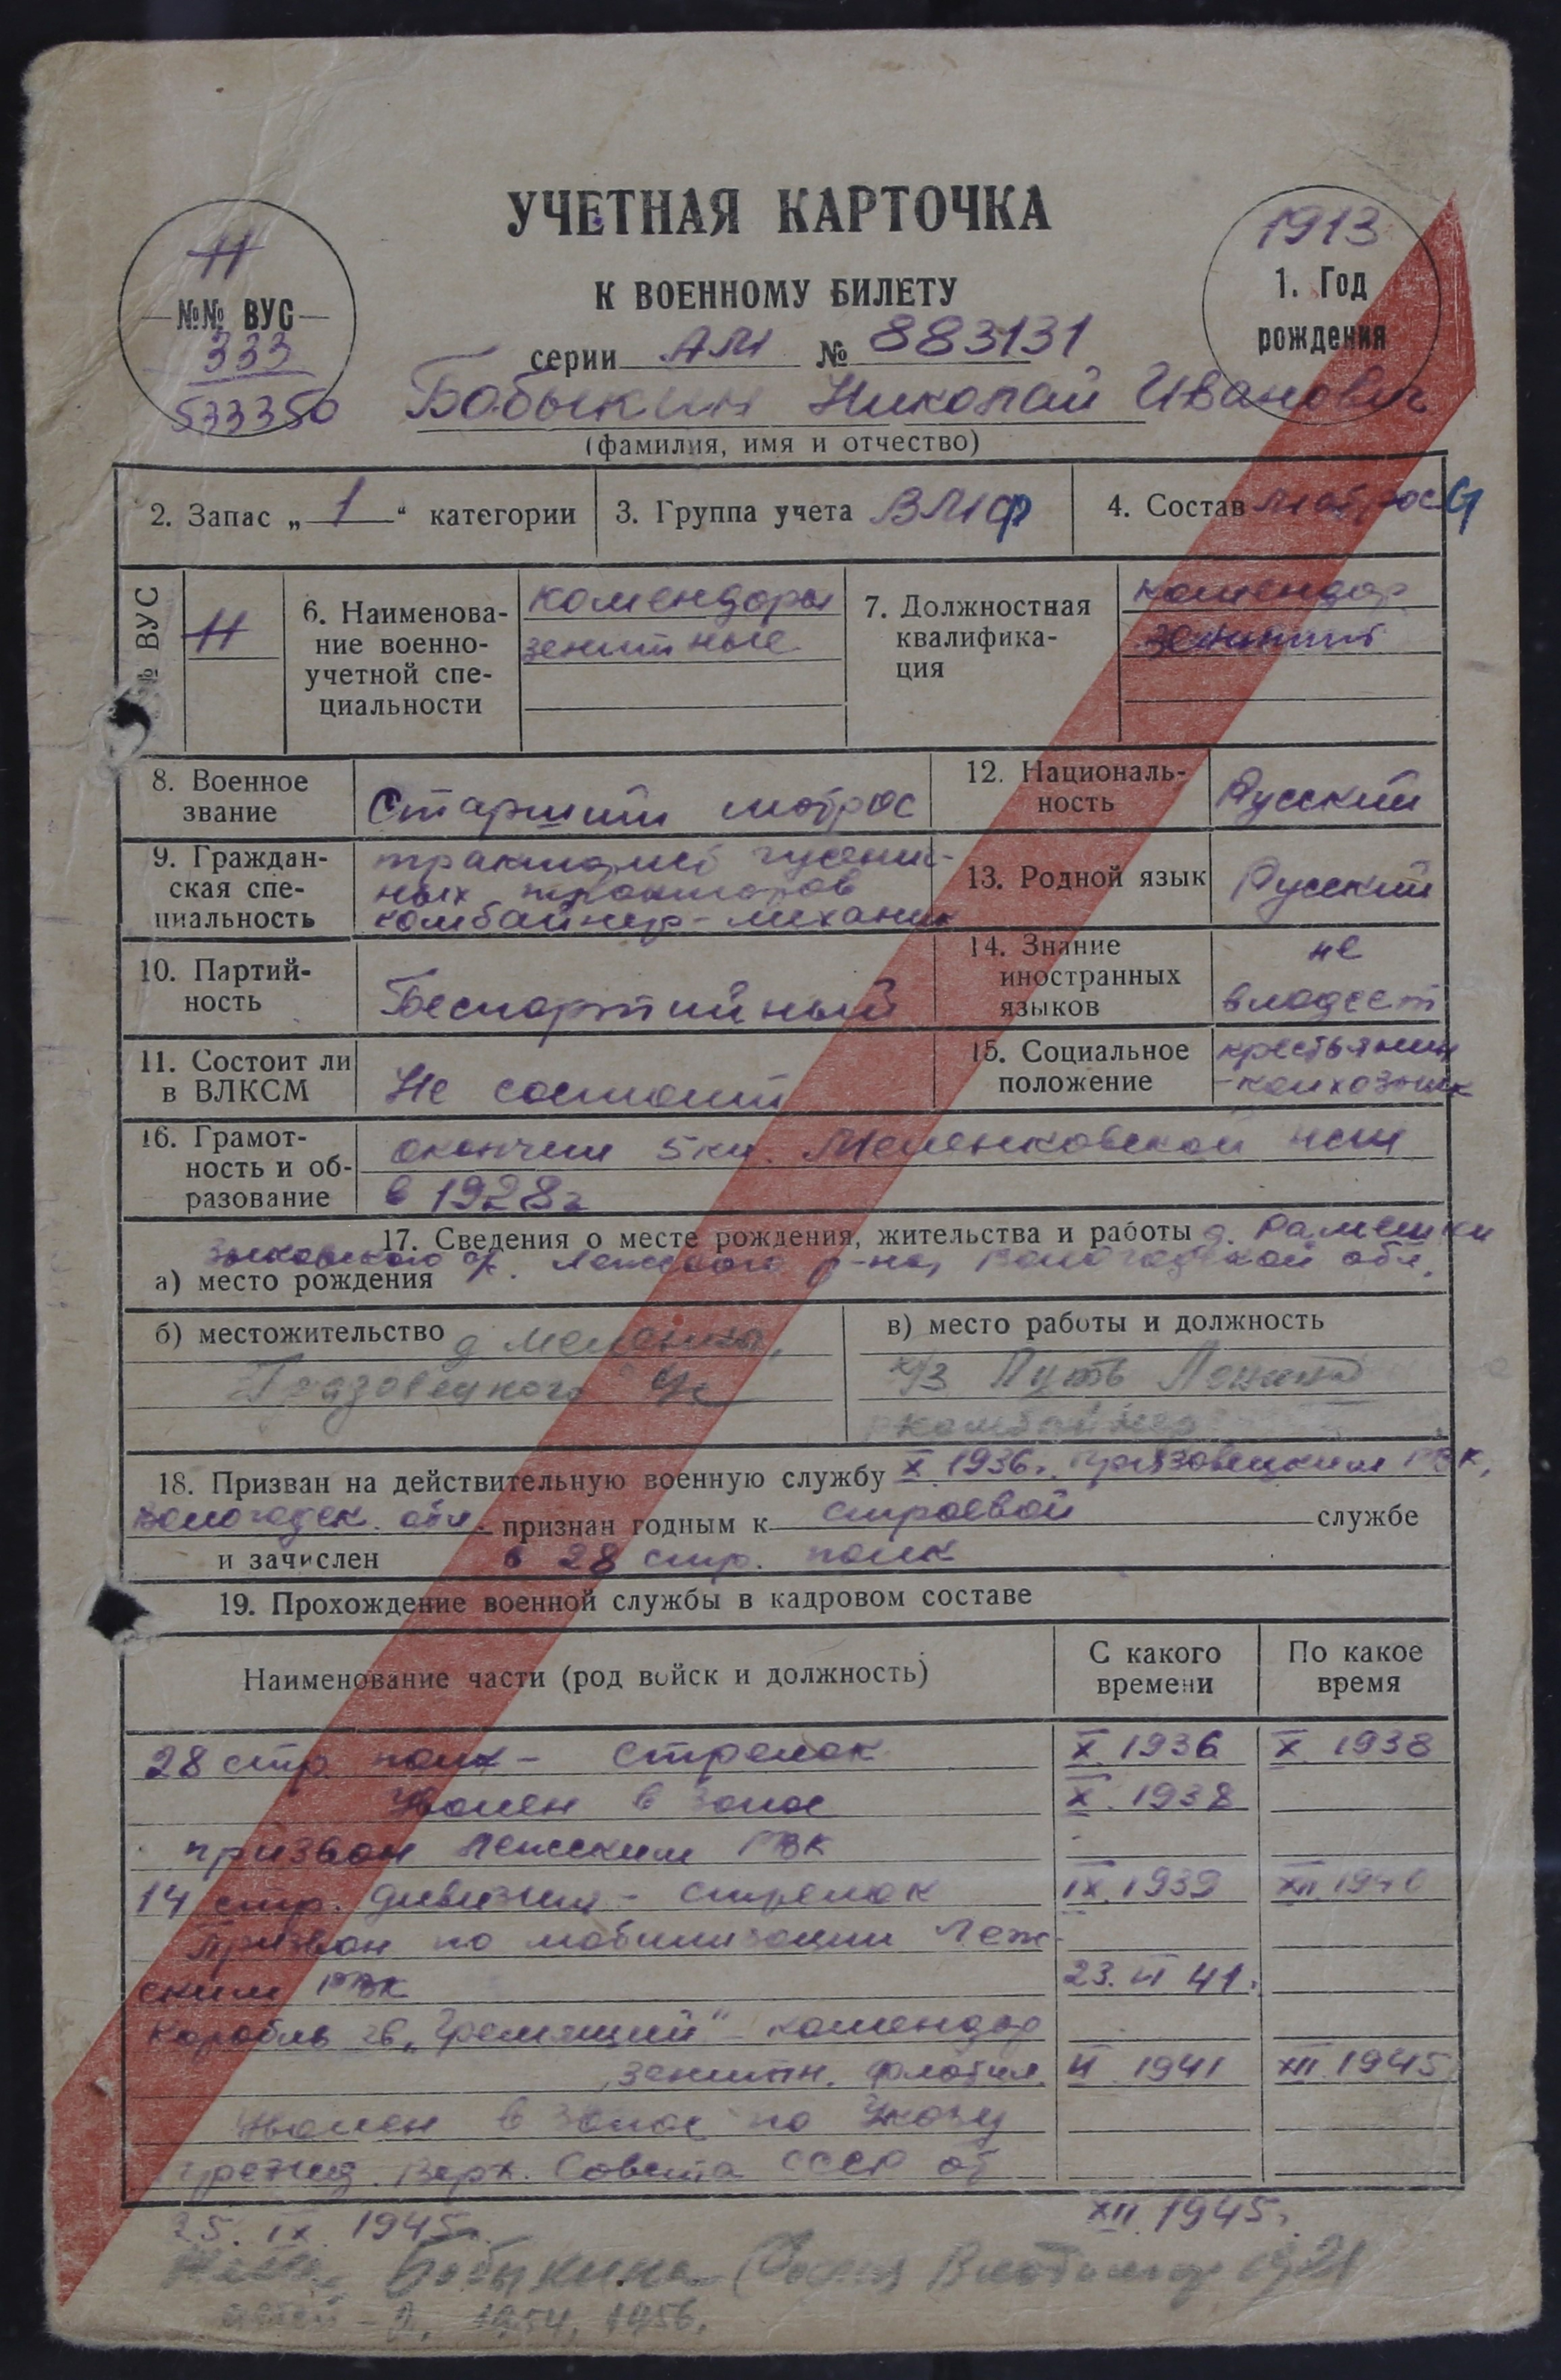 УЧЕТНАЯ КАРТОЧКА
К ВОЕННОМУ БИЛЕТУ
серии АМ № 883131
11
№№ ВУС
333
533350
1913
1. Год
рождения
Бобыкин Николай Иванович
(фамилия, имя и отчество)
2. Запас „1“ категории
3. Группа учета ВМФ
4. Состав матрос
№ ВУС
11
6. Наименова-
ние военно-
учетной спе-
циальности
комендоры
зенитные
7. Должностная
квалифика-
ция
комендор
зенитный
8. Военное
звание
Старший матрос
12. Националь-
ность
Русский
9. Граждан-
ская спе-
циальность
тракторист гусенич-
ных тракторов
комбайнер-механик
13. Родной язык
Русский
10. Партий-
ность
Беспартийный
14. Знание
иностранных
языков
не
владеет
11. Состоит ли
в ВЛКСМ
Не состоит
15. Социальное
положение
крестьянин
-колхозник
16. Грамот-
ность и об-
разование
окончил 5 кл. Меленковской нсш
в 1928г
17. Сведения о месте рождения, жительства и работы д. Рамешки
Зыковского с/с. Лежского р-на, Вологодской обл.
а) место рождения
б) местожительство д Меленка,
Грязовецкого с/с
в) место работы и должность
к/з Путь Ленина
комбайнер
18. Призван на действительную военную службу X 1936г. Грязовецким РВК,
Вологодск. обл. признан годным к строевой службе
и зачислен в 28 стр. полк
19. Прохождение военной службы в кадровом составе
Наименование части (род войск и должность)
С какого
времени
По какое
время
28 стр. полк - стрелок X. 1936 X. 1938
Уволен в запас X. 1938
призван Лежским РВК
14 стр. дивизия - стрелок IX. 1939 XII. 1940
призван по мобилизации Леж-
ским РВК 23. VI 41.
Корабль гв. „Гремящий“ - комендор
зенитн. VI 1941 XII 1945
Уволен в запас по Указу
през��д. Верх. Совета СССР от
25. IX 1945г. XII 1945г.
Жена Бобыкина Владимир 1921
детей - 2, 1954, 1956.